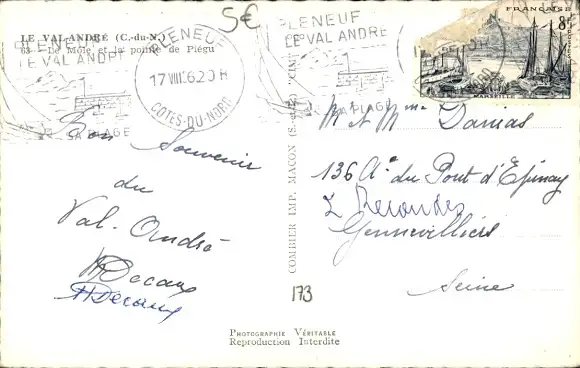 5€
LE VAL-ANDRÉ (C.-du-N.)
63 - Le Môle et la pointe de Piégu
PLENEUF
LE VAL ANDRÉ
SA PLAGE
PLENEUF
17 VIII
20 H
COTES-DU-NORD
PLENEUF
LE VAL ANDRÉ
SA PLAGE
FRANÇAISE
8F
MARSEILLE
Bon Souvenir
du
Val. André
HDecaux
HDecaux
COMBIER IMP. MACON
M et Mme Damas
136 Ae du Pont d'Epinay
Gennevilliers
Seine
173
PHOTOGRAPHIE VÉRITABLE
Reproduction Interdite